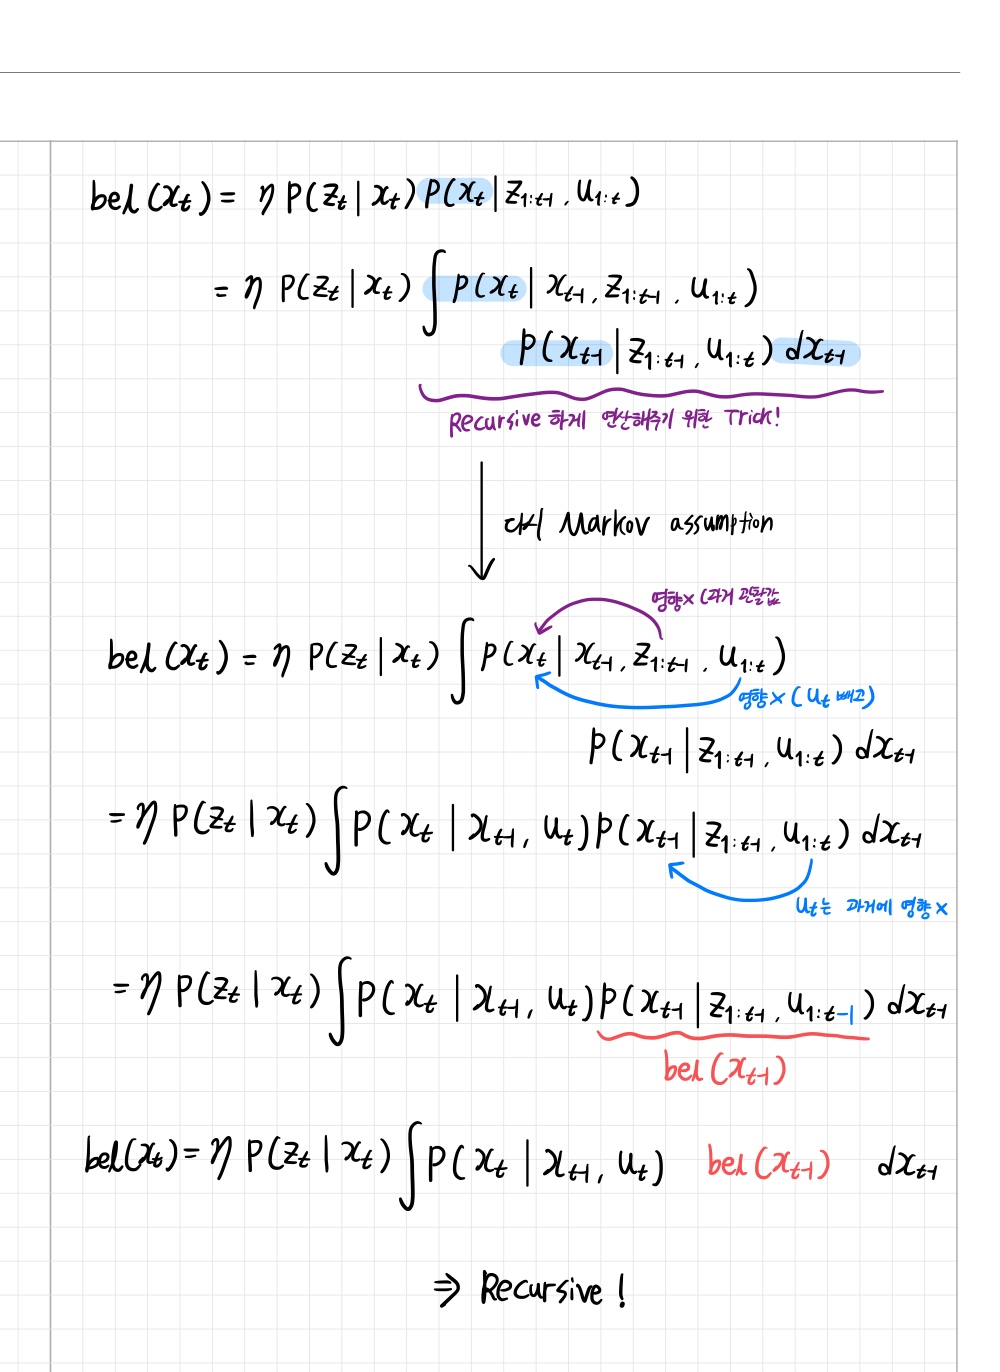 bel(xₜ) = η P(zₜ | xₜ) P(xₜ | z₁:ₜ₋₁, u₁:ₜ)
= η P(zₜ | xₜ) ∫ P(xₜ | xₜ₋₁, z₁:ₜ₋₁, u₁:ₜ)
P(xₜ₋₁ | z₁:ₜ₋₁, u₁:ₜ) dxₜ₋₁
Recursive 하게 연산해주기 위한 Trick!
다시 Markov assumption
영향× (과거 관찰값
bel(xₜ) = η P(zₜ | xₜ) ∫ P(xₜ | xₜ₋₁, z₁:ₜ₋₁, u₁:ₜ)
영향× (uₜ 빼고)
P(xₜ₋₁ | z₁:ₜ₋₁, u₁:ₜ) dxₜ₋₁
= η P(zₜ | xₜ) ∫ P(xₜ | xₜ₋₁, uₜ) P(xₜ₋₁ | z₁:ₜ₋₁, u₁:ₜ) dxₜ₋₁
uₜ는 과거에 영향×
= η P(zₜ | xₜ) ∫ P(xₜ | xₜ₋₁, uₜ) P(xₜ₋₁ | z₁:ₜ₋₁, u₁:ₜ₋₁) dxₜ₋₁
bel(xₜ₋₁)
bel(xₜ) = η P(zₜ | xₜ) ∫ P(xₜ | xₜ₋₁, uₜ) bel(xₜ₋₁) dxₜ₋₁
⇒ Recursive!